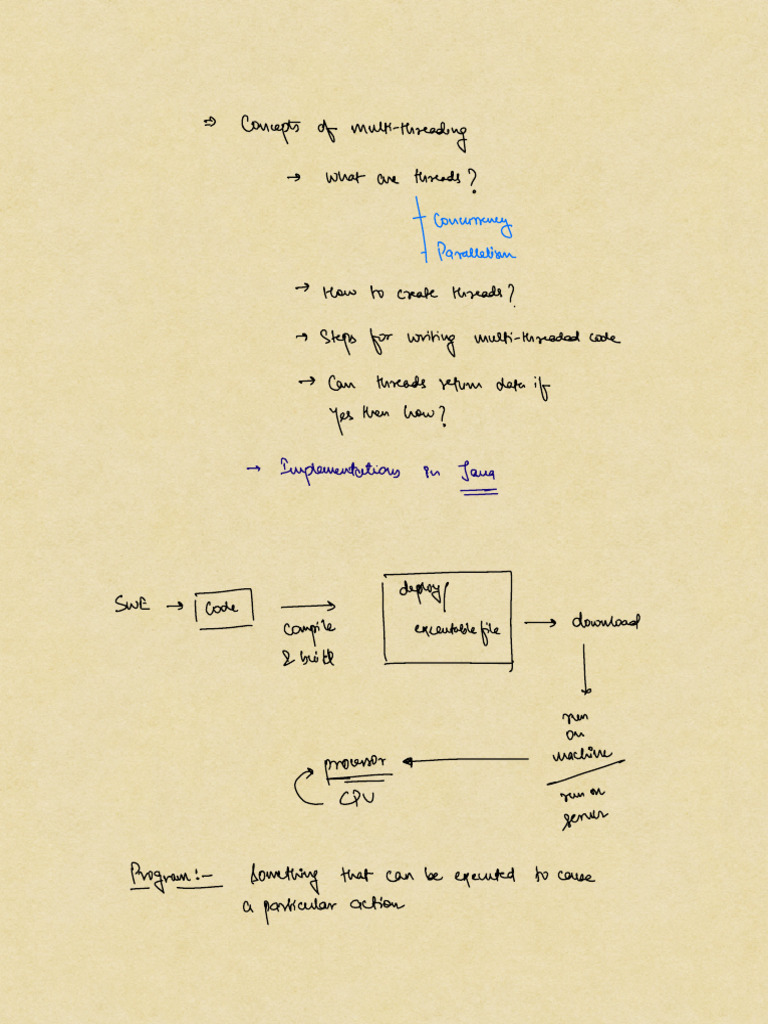 ⇒ Concepts of multi-threading
→ What are threads?
Concurrency
Parallelism
→ How to create threads?
→ Steps for writing multi-threaded code
→ Can threads return data if
yes then how?
→ Implementations in Java
SWE → Code
compile
& build
deploy/
executable file
→ download
run
on
machine
run on
server
processor
CPU
Program:- Something that can be executed to cause
a particular action